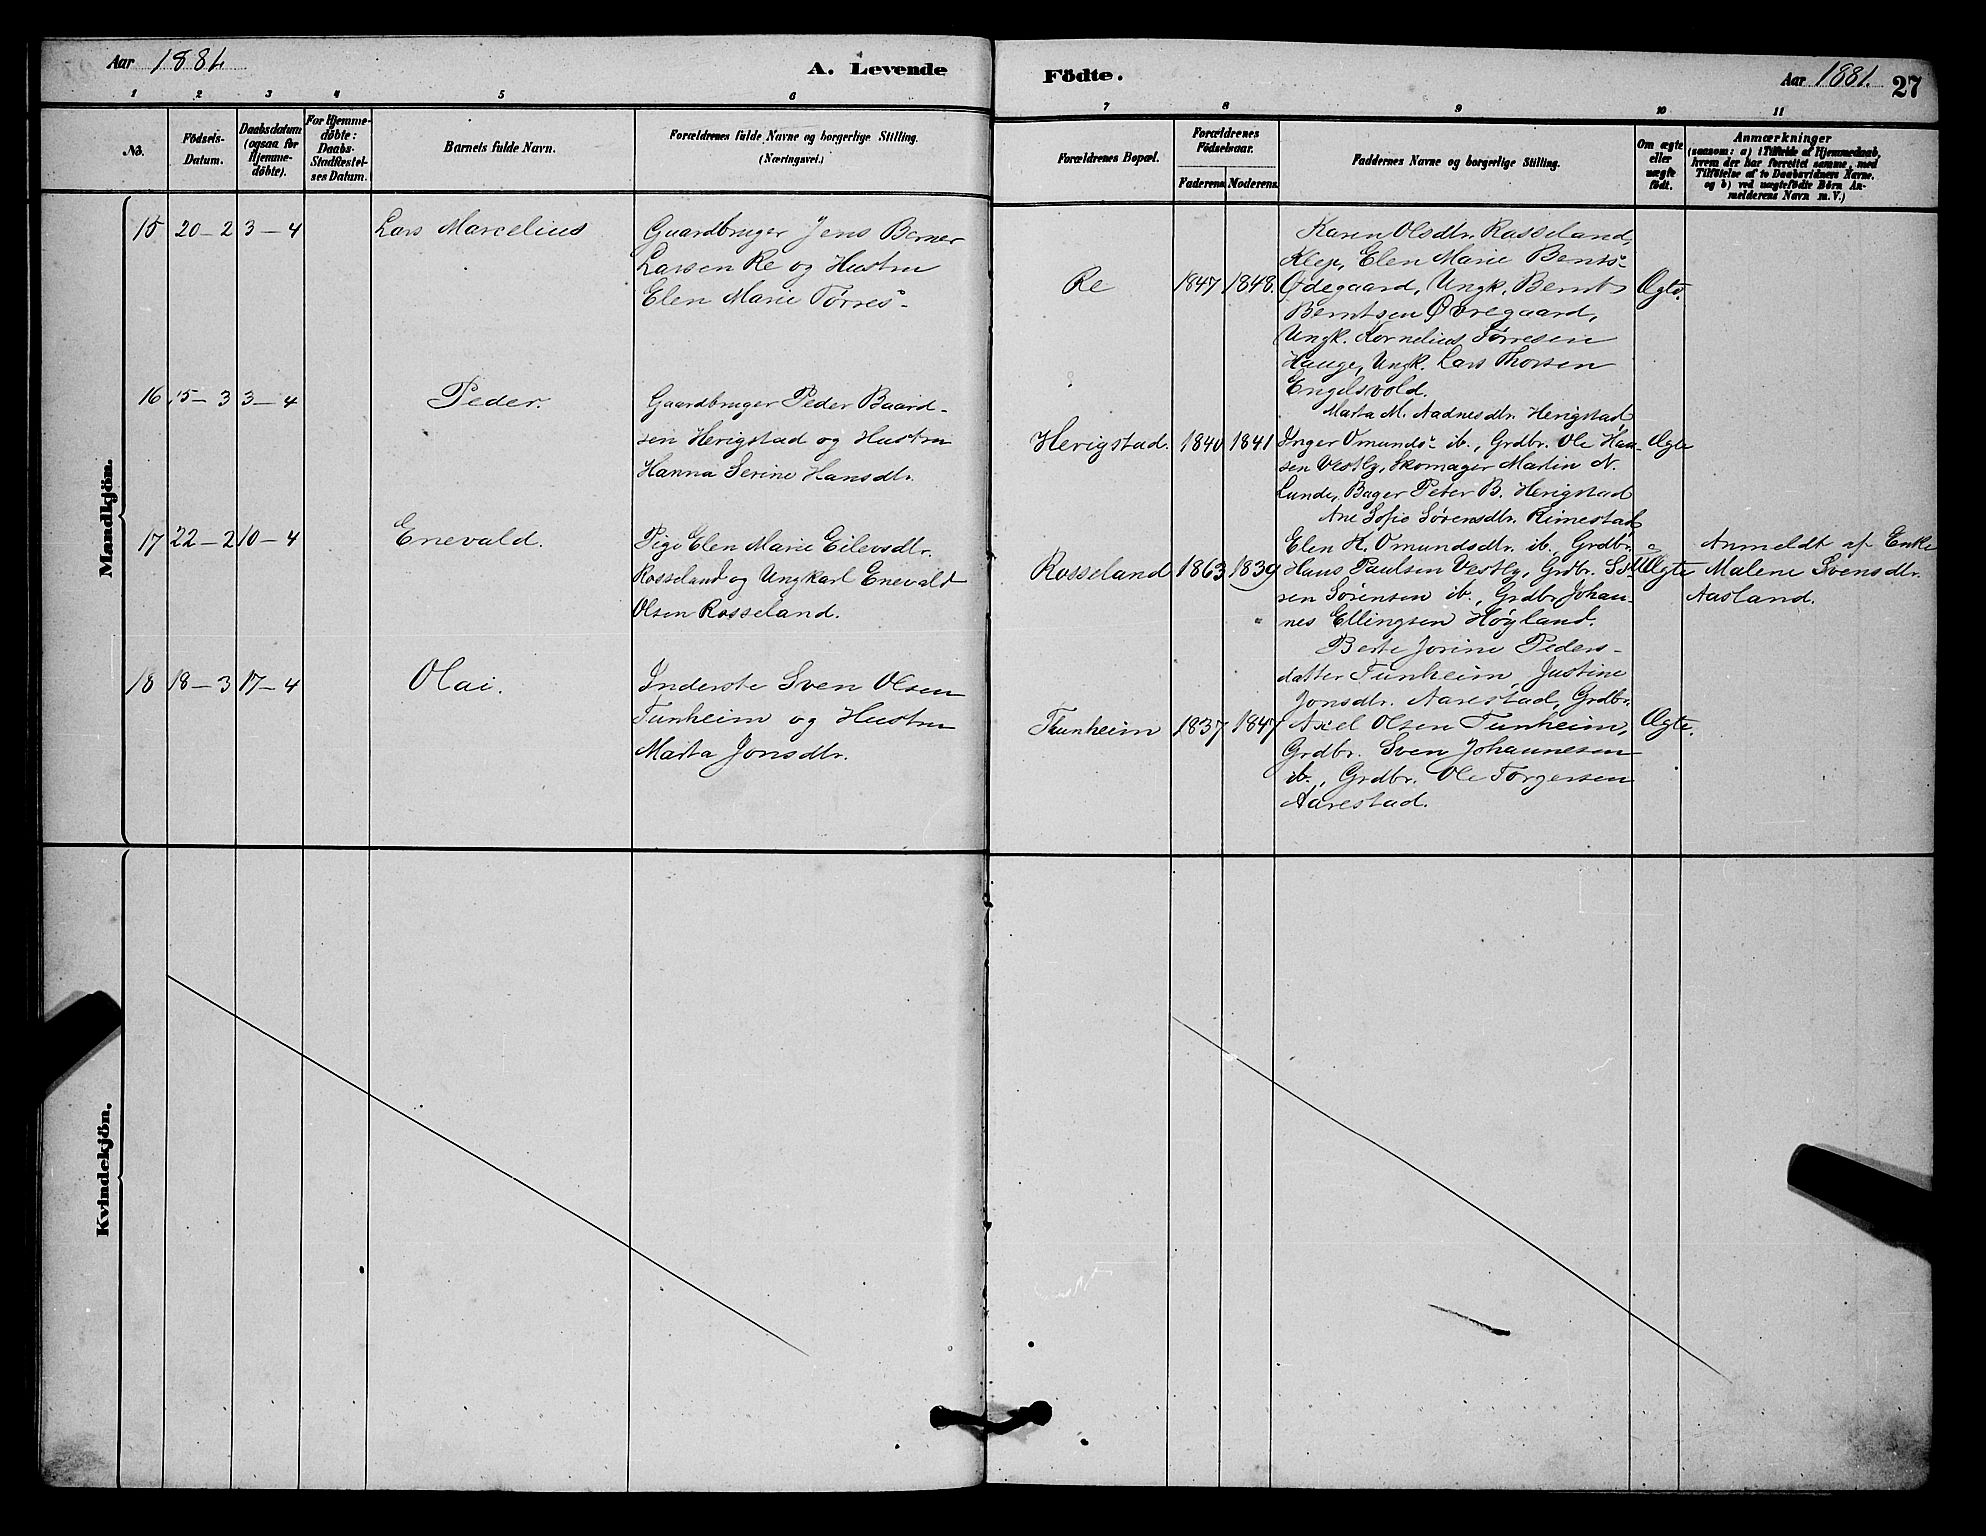 Aar 1881
A. Levende
Födte.
Aar 1881.
27
1 2 3 4 5 6
7 8 9 10 11
No.
Födsels-
Datum.
Daabsdatum
(ogsaa for
Hjemme-
døbte).
For Hjemme-
døbte:
Daabs-
Stadfæstel-
ses Datum.
Barnets fulde Navn.
Forældrenes fulde Navne og borgerlige Stilling.
(Næringsvei.)
Forældrenes Bopæl.
Forældrenes
Fødselsaar.
Faderens. Moderens.
Faddernes Navne og borgerlige Stilling.
Om ægte
eller
uægte
født.
Anmærkninger
(saasom: a) i Tilfælde af Hjemmedaab,
hvem der har forrettet samme, med
Tilföielse af to Daabsvidners Navne.
og b) ved uægtefödte Börn An-
melderens Navn m.V.)
Mandkjön.
15 20-2 3-4
Lars Marcelius
Gaardbruger Jens Berner
Larsen Re og Hustru
Elen Marie Tørres-
Re
1847 1848.
Karen Olsdtr. Rosseland,
Klep, Elen Marie Bents-
Ødegaard, Ungk. Bernt
Berntsen Øvregaard,
Ungk. Kornelius Tørresen
Hauge, Ungk. Lars Thorsen
Engelsvold.
Ægte.
16 15-3 3-4
Peder.
Gaardbruger Peder Baard-
sen Herigstad og Hustru
Hanna Serine Hansdtr.
Herigstad.
1840 1841
Marta M. Aadnesdtr. Herigstad
Inger Omunds- ib., Grdbr. Ole Han-
sen Vestly, Skomager Martin N.
Lunde, Bager Peter B. Herigstad
Ægte
17 22-2 10-4
Enevald.
Pige Elen Marie Eilevsdtr.
Rosseland og Ungkarl Enevald
Olsen Rosseland.
Rosseland
1863 1839
Ane Sofie Sørensdtr. Rimestad
Elen H. Omundsdtr. ib., Grdbr.
Hans Paulsen Vestly, Grdbr. Sø-
ren Sørensen ib., Grdbr. Johan-
nes Ellingsen Høyland.
Uægte
Anmeldt af Enke
Malene Svensdtr.
Aasland.
18 18-3 17-4
Olai.
Inderste Sven Olsen
Tunheim og Hustru
Marta Jonsdtr.
Thunheim
1837 1847
Berte Jorine Peders-
datter Tunheim, Justine
Jonsdtr. Aarestad, Grdbr.
Axel Olsen Tunheim,
Grdbr. Sven Johannesen
ib., Grdbr. Ole Torgersen
Aarestad.
Ægte.
Kvindekjön.